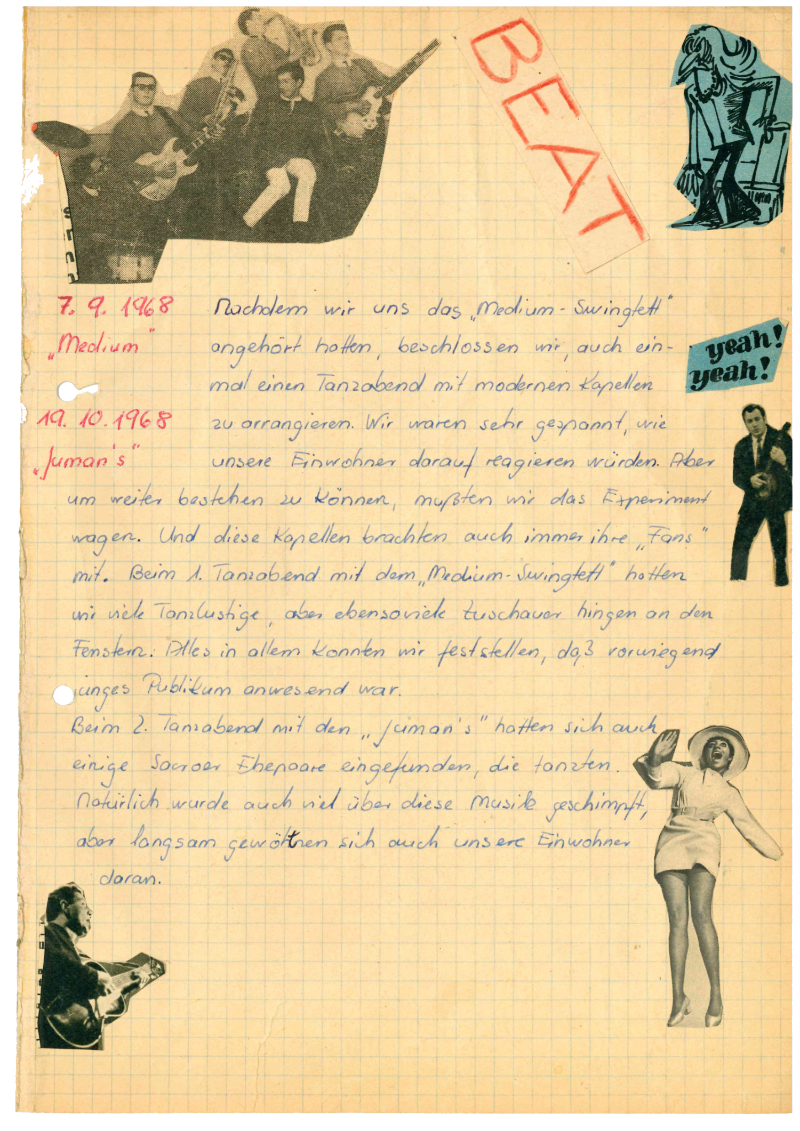 BEAT
7. 9. 1968
„Medium"
Nachdem wir uns das „Medium-Swingtett"
angehört hatten, beschlossen wir, auch ein-
mal einen Tanzabend mit modernen Kapellen
yeah!
yeah!
19. 10. 1968
„Juman's"
zu arrangieren. Wir waren sehr gespannt, wie
unsere Einwohner darauf reagieren würden. Aber
um weiter bestehen zu können, mußten wir das Experiment
wagen. Und diese Kapellen brachten auch immer ihre „Fans"
mit. Beim 1. Tanzabend mit dem „Medium-Swingtett" hatten
wir viele Tanzlustige, aber ebensoviele Zuschauer hingen an den
Fenstern. Alles in allem konnten wir feststellen, daß vorwiegend
junges Publikum anwesend war.
Beim 2. Tanzabend mit den „Juman's" hatten sich auch
einige Sacroer Ehepaare eingefunden, die tanzten.
Natürlich wurde auch viel über diese Musik geschimpft,
aber langsam gewöhnen sich auch unsere Einwohner
daran.